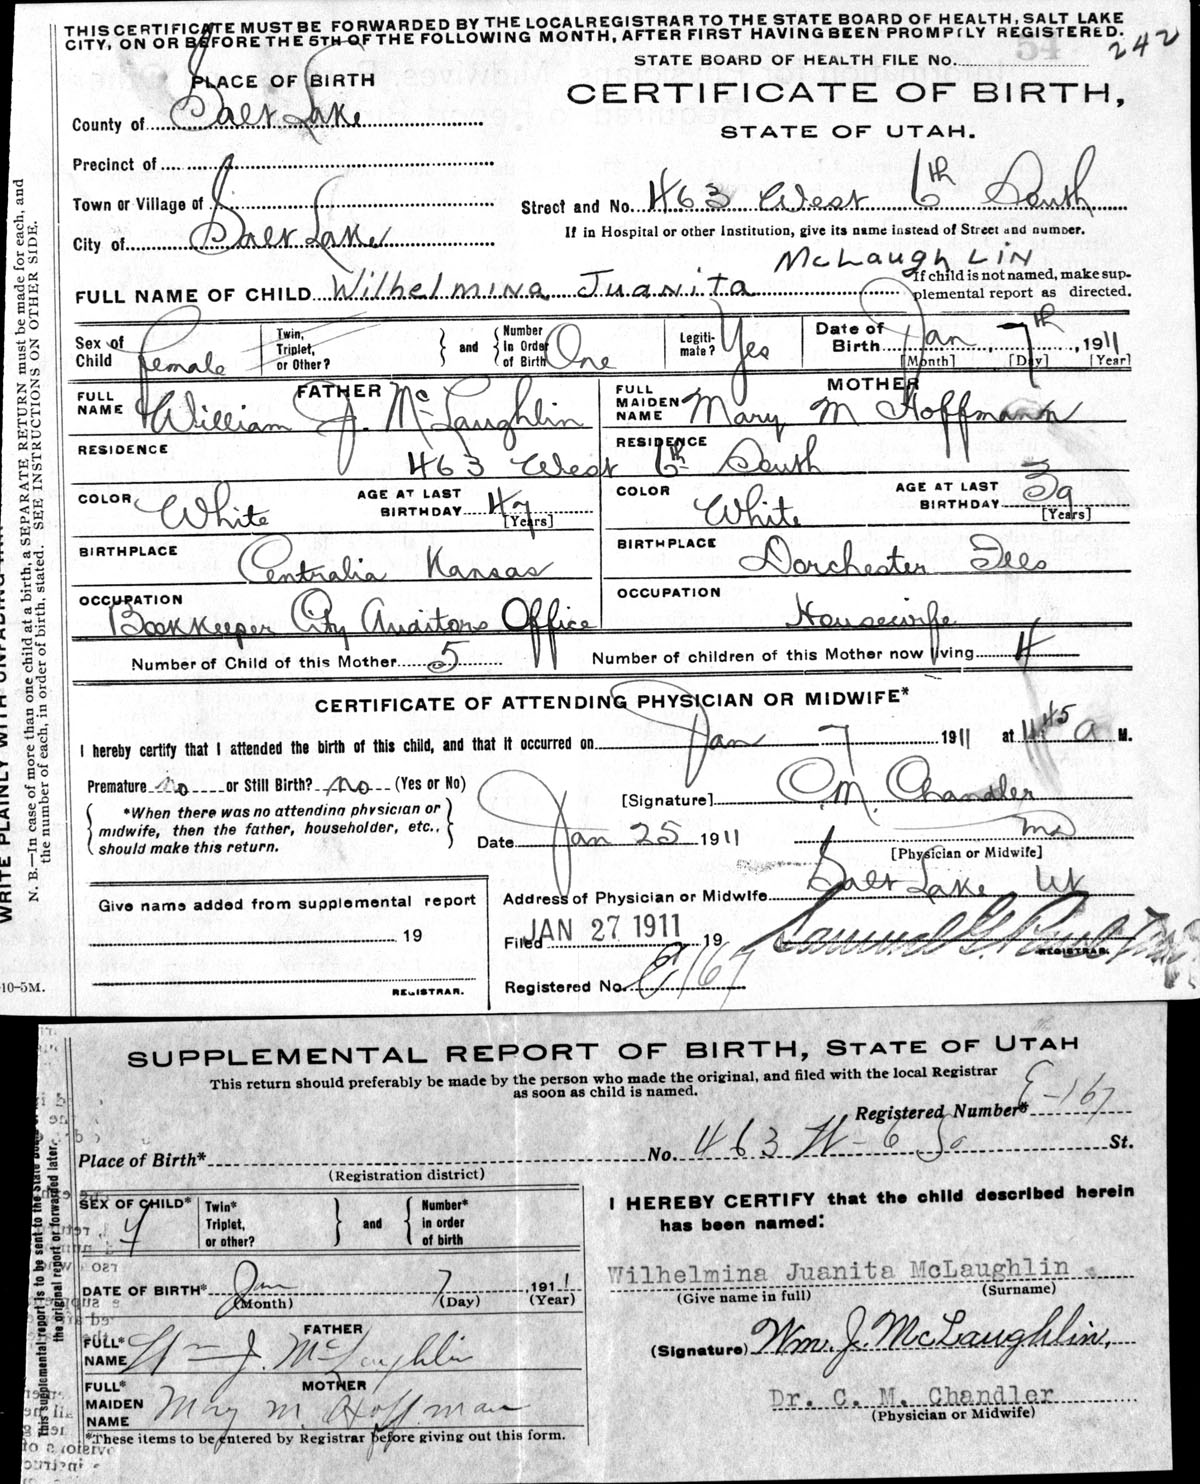 THIS CERTIFICATE MUST BE FORWARDED BY THE LOCAL REGISTRAR TO THE STATE BOARD OF HEALTH, SALT LAKE
CITY, ON OR BEFORE THE 5TH OF THE FOLLOWING MONTH, AFTER FIRST HAVING BEEN PROMPTLY REGISTERED.
242
STATE BOARD OF HEALTH FILE No.
PLACE OF BIRTH
CERTIFICATE OF BIRTH,
STATE OF UTAH.
County of Salt Lake
Precinct of
Town or Village of
Street and No. 463 West 6th South
City of Salt Lake
If in Hospital or other Institution, give its name instead of Street and number.
McLaughLIN
FULL NAME OF CHILD Wilhelmina Juanita
If child is not named, make sup-
plemental report as directed.
Sex of Child Female
Twin, Triplet, or Other?
and
Number In Order of Birth One
Legiti-mate? Yes
Date of Birth Jan 7th, 1911
[Month] [Day] [Year]
FATHER
FULL NAME William J. McLaughlin
MOTHER
FULL MAIDEN NAME Mary M Hoffmann
RESIDENCE
RESIDENCE
463 West 6th South
COLOR White AGE AT LAST BIRTHDAY 47 [Years]
COLOR White AGE AT LAST BIRTHDAY 39 [Years]
BIRTHPLACE Centralia Kansas
BIRTHPLACE Dorchester Ills
OCCUPATION Bookkeeper City Auditors Office
OCCUPATION Housewife
Number of Child of this Mother 5
Number of children of this Mother now living 4
CERTIFICATE OF ATTENDING PHYSICIAN OR MIDWIFE*
I hereby certify that I attended the birth of this child, and that it occurred on Jan 7 1911 at 1145 a M.
Premature no or Still Birth? no (Yes or No)
*When there was no attending physician or
midwife, then the father, householder, etc.,
should make this return.
[Signature] C.M. Chandler
Date Jan 25 1911
MD
[Physician or Midwife]
Address of Physician or Midwife Salt Lake Ut
Give name added from supplemental report
19
REGISTRAR.
Filed JAN 27 1911 19
REGISTRAR.
Registered No. E167
10-5M.
N. B.—In case of more than one child at a birth, a SEPARATE RETURN must be made for each, and
the number of each, in order of birth, stated. SEE INSTRUCTIONS ON OTHER SIDE.
WRITE PLAINLY WITH UNFADING
SUPPLEMENTAL REPORT OF BIRTH, STATE OF UTAH
This return should preferably be made by the person who made the original, and filed with the local Registrar
as soon as child is named.
Registered Number* E-167
Place of Birth* No. 463 W-6 So St.
(Registration district)
SEX OF CHILD* f
Twin* Triplet, or other?
and
Number* in order of birth
DATE OF BIRTH* Jan 7 1911
(Month) (Day) (Year)
FATHER
FULL* NAME Wm J. McLaughlin
MOTHER
FULL* MAIDEN NAME Mary M. Hoffman
*These items to be entered by Registrar before giving out this form.
I HEREBY CERTIFY that the child described herein
has been named:
Wilhelmina Juanita McLaughlin
(Give name in full) (Surname)
(Signature) Wm. J. McLaughlin,
Dr. C. M. Chandler
(Physician or Midwife)
This supplemental report is to be sent to the State
the original report or forwarded later.